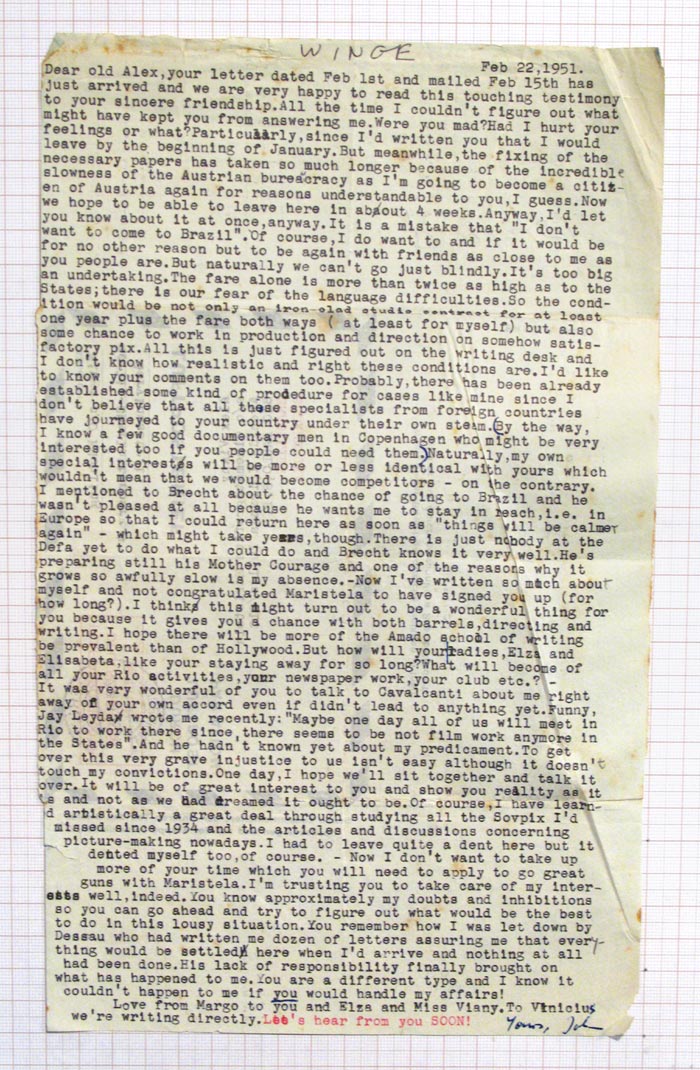 WINGE
Feb 22,1951.
Dear old Alex,your letter dated Feb 1st and mailed Feb 15th has
just arrived and we are very happy to read this touching testimony
to your sincere friendship.All the time I couldn't figure out what
might have kept you from answering me.Were you mad?Had I hurt your
feelings or what?Particularly,since I'd written you that I would
leave by the beginning of January.But meanwhile,the fixing of the
necessary papers has taken so much longer because of the incredible
slowness of the Austrian bureacracy as I'm going to become a citiz-
en of Austria again for reasons understandable to you,I guess.Now
we hope to be able to leave here in about 4 weeks.Anyway,I'd let
you know about it at once,anyway.It is a mistake that "I don't
want to come to Brazil".Of course,I do want to and if it would be
for no other reason but to be again with friends as close to me as
you people are.But naturally we can't go just blindly.It's too big
an undertaking.The fare alone is more than twice as high as to the
States;there is our fear of the language difficulties.So the cond-
ition would be not only an iron clad studio contract for at least
one year plus the fare both ways ( at least for myself) but also
some chance to work in production and direction on somehow satis-
factory pix.All this is just figured out on the writing desk and
I don't know how realistic and right these conditions are.I'd like
to know your comments on them too.Probably,there has been already
established some kind of prodedure for cases like mine since I
don't believe that all these specialists from foreign countries
have journeyed to your country under their own steam.(By the way,
I know a few good documentary men in Copenhagen who might be very
interested too if you people could need them.)Naturally,my own
special interests will be more or less identical with yours which
wouldn't mean that we would become competitors - on the contrary.
I mentioned to Brecht about the chance of going to Brazil and he
wasn't pleased at all because he wants me to stay in reach,i.e. in
Europe so that I could return here as soon as "things will be calmer
again" - which might take years,though.There is just nobody at the
Defa yet to do what I could do and Brecht knows it very well.He's
preparing still his Mother Courage and one of the reasons why it
grows so awfully slow is my absence.-Now I've written so much about
myself and not congratulated Maristela to have signed you up (for
how long?).I think this might turn out to be a wonderful thing for
you because it gives you a chance with both barrels,directing and
writing.I hope there will be more of the Amado school of writing
be prevalent than of Hollywood.But how will your ladies,Elza and
Elisabeta,like your staying away for so long?What will become of
all your Rio activities,your newspaper work,your club etc.? -
It was very wonderful of you to talk to Cavalcanti about me right
away of your own accord even if didn't lead to anything yet.Funny,
Jay Leyda wrote me recently:"Maybe one day all of us will meet in
Rio to work there since there seems to be not film work anymore in
the States".And he hadn't known yet about my predicament.To get
over this very grave injustice to us isn't easy although it doesn't
touch my convictions.One day,I hope we'll sit together and talk it
over.It will be of great interest to you and show you reality as it
s and not as we had dreamed it ought to be.Of course,I have learn-
d artistically a great deal through studying all the Sovpix I'd
missed since 1934 and the articles and discussions concerning
picture-making nowadays.I had to leave quite a dent here but it
dented myself too,of course. - Now I don't want to take up
more of your time which you will need to apply to go great
guns with Maristela.I'm trusting you to take care of my inter-
ests well,indeed.You know approximately my doubts and inhibitions
so you can go ahead and try to figure out what would be the best
to do in this lousy situation.You remember how I was let down by
Dessau who had written me dozen of letters assuring me that every-
thing would be settled here when I'd arrive and nothing at all
had been done.His lack of responsibility finally brought on
what has happened to me.You are a different type and I know it
couldn't happen to me if you would handle my affairs!
Love from Margo to you and Elza and Miss Viany.To Vinicius
we're writing directly.Let's hear from you SOON!
Yours, John